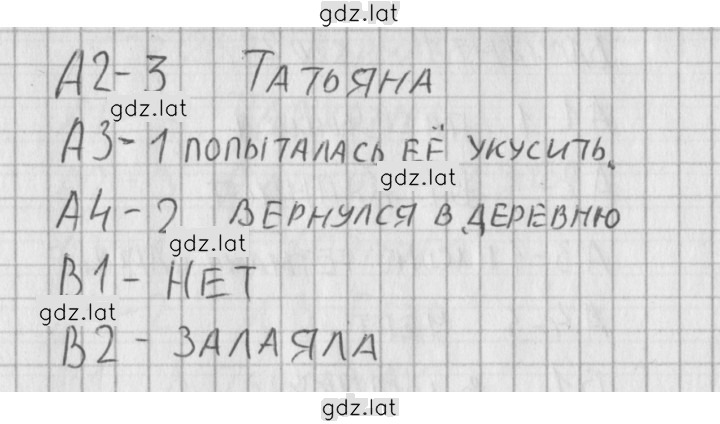 gdz.lat
А2-3 Татьяна
gdz.lat
А3-1 попыталась её укусить.
gdz.lat
А4-2 вернулся в деревню
gdz.lat
В1- нет
gdz.lat
В2- залаяла
gdz.lat